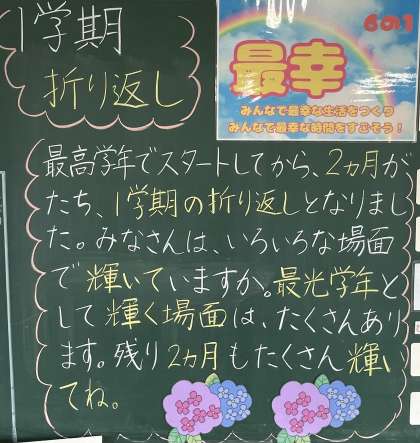 1学期
折り返し
6の1
最幸
みんなで最幸な生活をつくり
みんなで最幸な時間をすごそう！
最高学年でスタートしてから、2ヵ月が
たち、1学期の折り返しとなりまし
た。みなさんは、いろいろな場面
で輝いていますか。最光学年と
して輝く場面は、たくさんあり
ます。残り2ヵ月もたくさん輝い
てね。